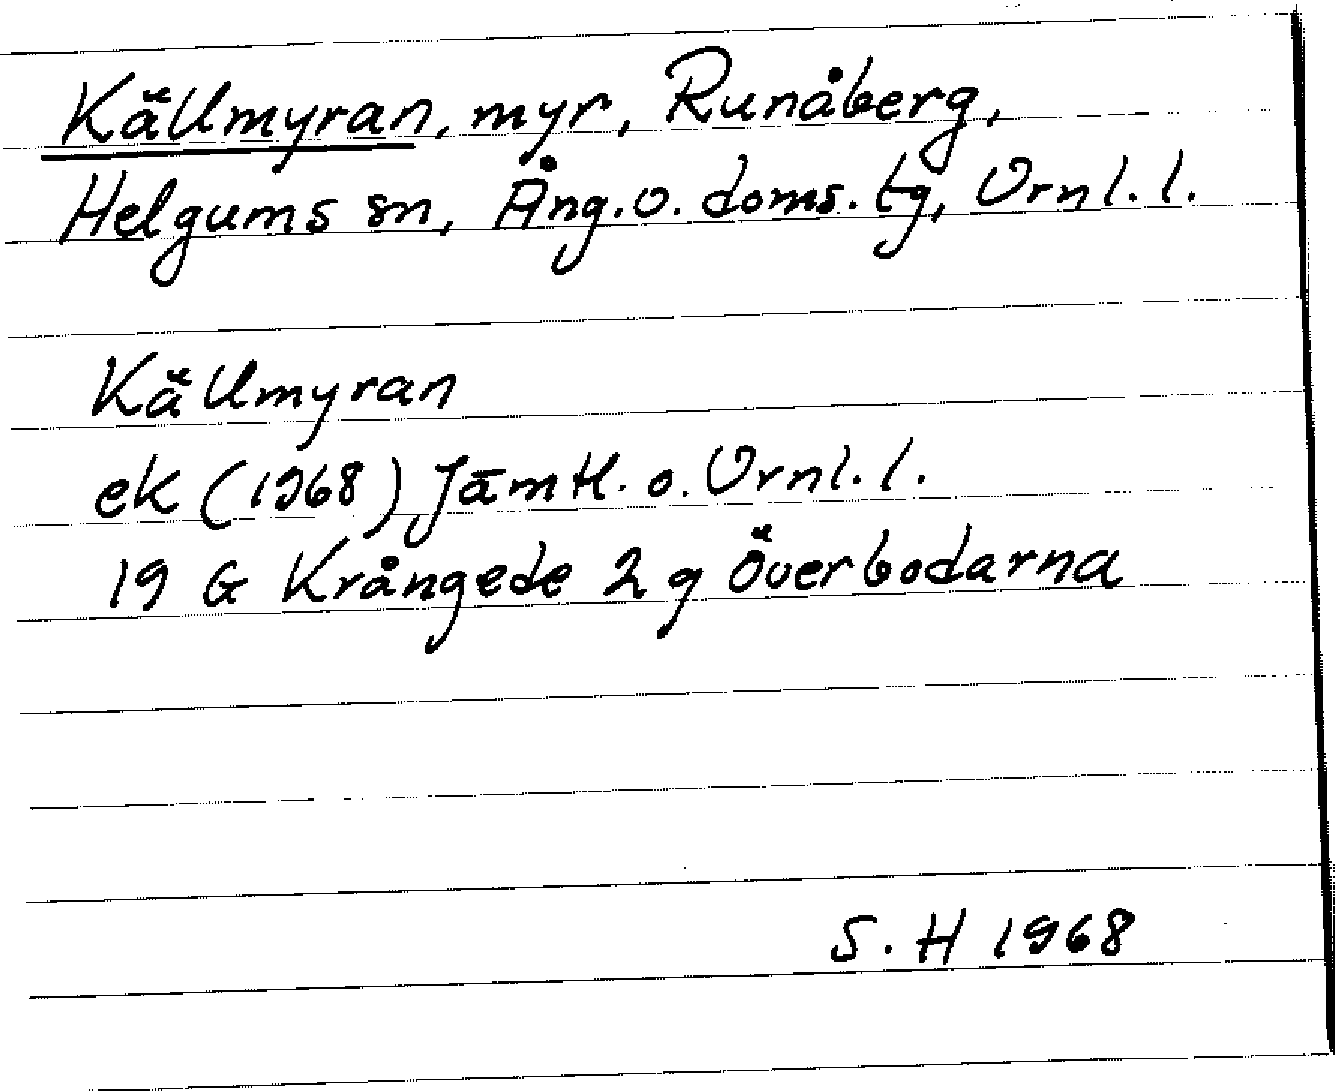 Källmyran, myr, Runåberg,
Helgums sn, Ång. v. doms. tg, Vrnl. l.
Källmyran
ek (1968) Jämtl. o. Vrnl. l.
19 G Krångede 2 g Överbodarna
S. H 1968